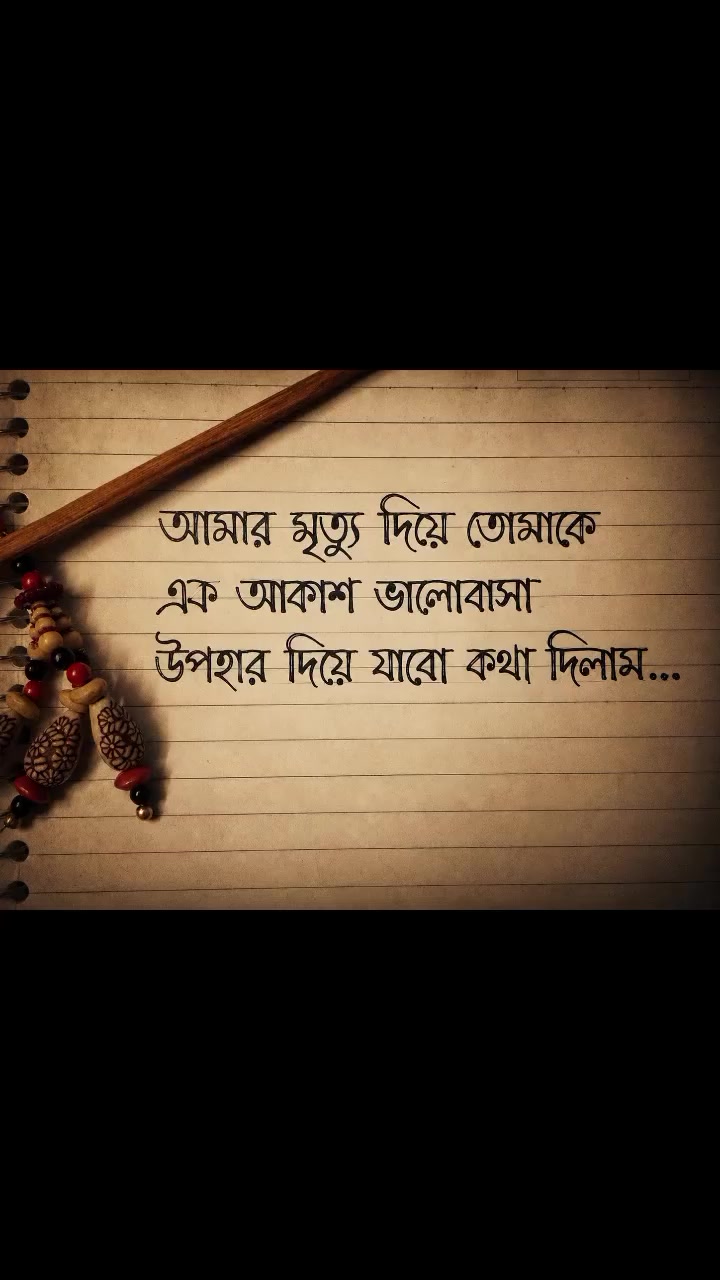 আমার মৃত্যু দিয়ে তোমাকে
এক আকাশ ভালোবাসা
উপহার দিয়ে যাবো কথা দিলাম...